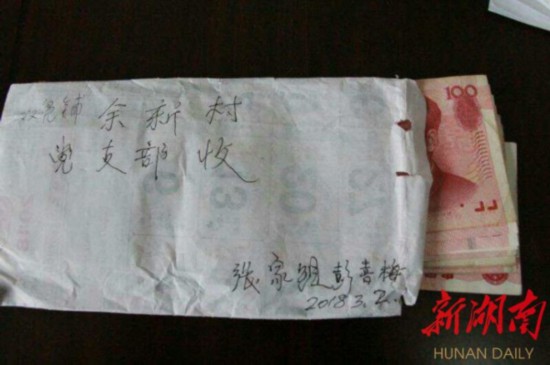 余新村
党支部收
张家组彭春梅
2018.3.2.
100
新湖南
HUNAN DAILY